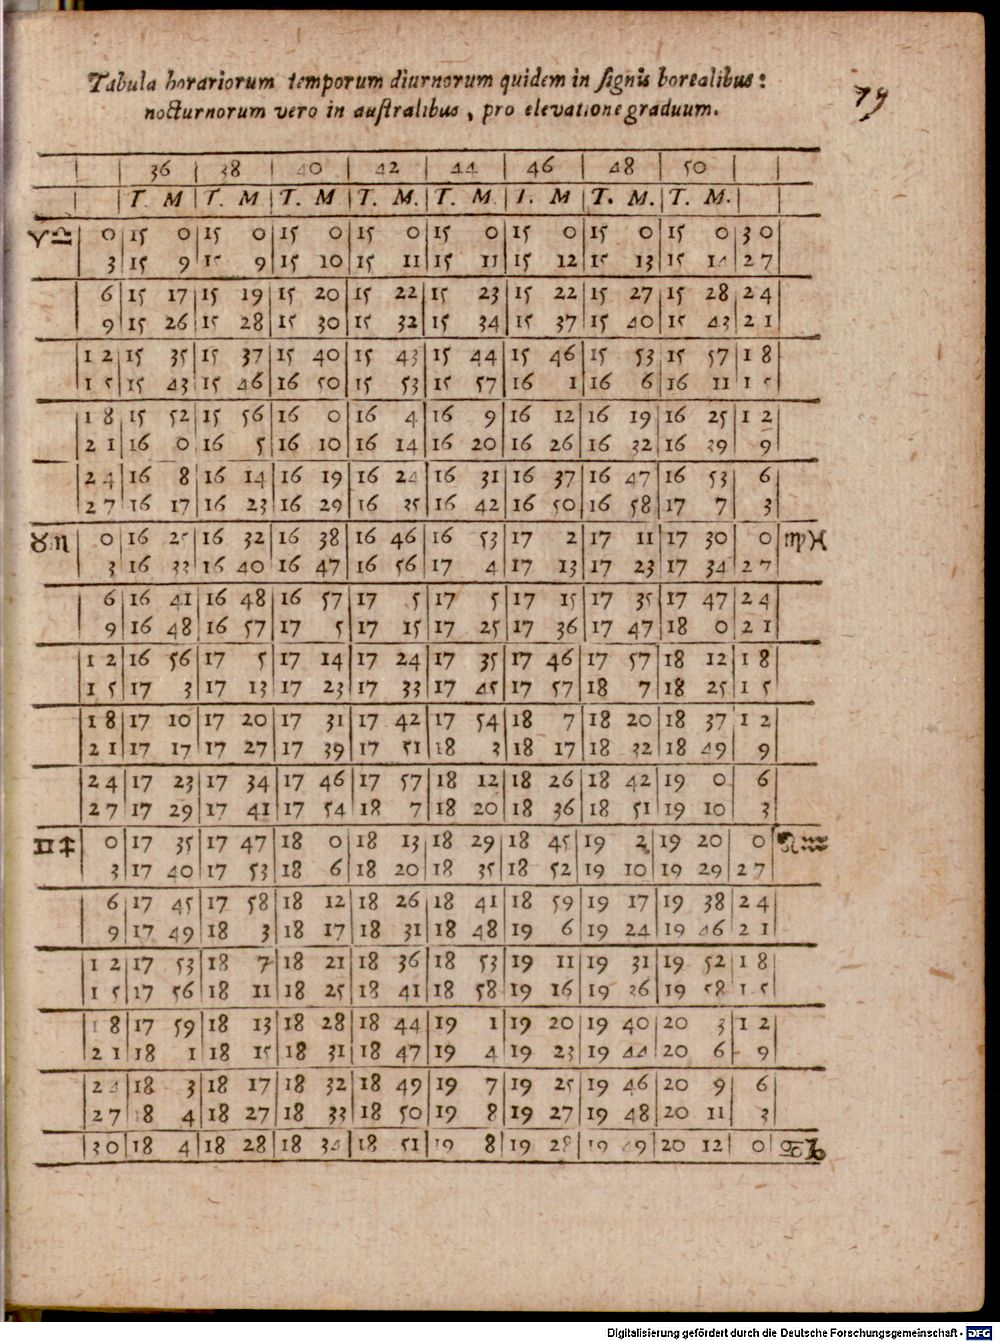 Tabula horariorum temporum diurnorum quidem in signis borealibus:
nocturnorum vero in australibus, pro elevatione graduum.
79
36 38 40 42 44 46 48 50
T. M T. M T. M T. M. T. M I. M T. M. T. M.
♈♎ 0 15 0 15 0 15 0 15 0 15 0 15 0 15 0 15 0 30
3 15 9 15 9 15 10 15 11 15 11 15 12 15 13 15 14 27
6 15 17 15 19 15 20 15 22 15 23 15 22 15 27 15 28 24
9 15 26 15 28 15 30 15 32 15 34 15 37 15 40 15 43 21
12 15 35 15 37 15 40 15 43 15 44 15 46 15 53 15 57 18
15 15 43 15 46 16 50 15 53 15 57 16 1 16 6 16 11 15
18 15 52 15 56 16 0 16 4 16 9 16 12 16 19 16 25 12
21 16 0 16 5 16 10 16 14 16 20 16 26 16 32 16 39 9
24 16 8 16 14 16 19 16 24 16 31 16 37 16 47 16 53 6
27 16 17 16 23 16 29 16 35 16 42 16 50 16 58 17 7 3
♉♏ 0 16 25 16 32 16 38 16 46 16 53 17 2 17 11 17 30 0 ♍♓
3 16 33 16 40 16 47 16 56 17 4 17 13 17 23 17 34 27
6 16 41 16 48 16 57 17 5 17 5 17 15 17 35 17 47 24
9 16 48 16 57 17 5 17 15 17 25 17 36 17 47 18 0 21
12 16 56 17 5 17 14 17 24 17 35 17 46 17 57 18 12 18
15 17 3 17 13 17 23 17 33 17 45 17 57 18 7 18 25 15
18 17 10 17 20 17 31 17 42 17 54 18 7 18 20 18 37 12
21 17 17 17 27 17 39 17 51 18 3 18 17 18 32 18 49 9
24 17 23 17 34 17 46 17 57 18 12 18 26 18 42 19 0 6
27 17 29 17 41 17 54 18 7 18 20 18 36 18 51 19 10 3
♊♐ 0 17 35 17 47 18 0 18 13 18 29 18 45 19 2 19 20 0 ♌♒
3 17 40 17 53 18 6 18 20 18 35 18 52 19 10 19 29 27
6 17 45 17 58 18 12 18 26 18 41 18 59 19 17 19 38 24
9 17 49 18 3 18 17 18 31 18 48 19 6 19 24 19 46 21
12 17 53 18 7 18 21 18 36 18 53 19 11 19 31 19 52 18
15 17 56 18 11 18 25 18 41 18 58 19 16 19 36 19 58 15
18 17 59 18 13 18 28 18 44 19 1 19 20 19 40 20 3 12
21 18 1 18 15 18 31 18 47 19 4 19 23 19 44 20 6 9
24 18 3 18 17 18 32 18 49 19 7 19 25 19 46 20 9 6
27 18 4 18 27 18 33 18 50 19 8 19 27 19 48 20 11 3
30 18 4 18 28 18 34 18 51 19 8 19 28 19 49 20 12 0 ♋♑
Digitalisierung gefördert durch die Deutsche Forschungsgemeinschaft - DFG